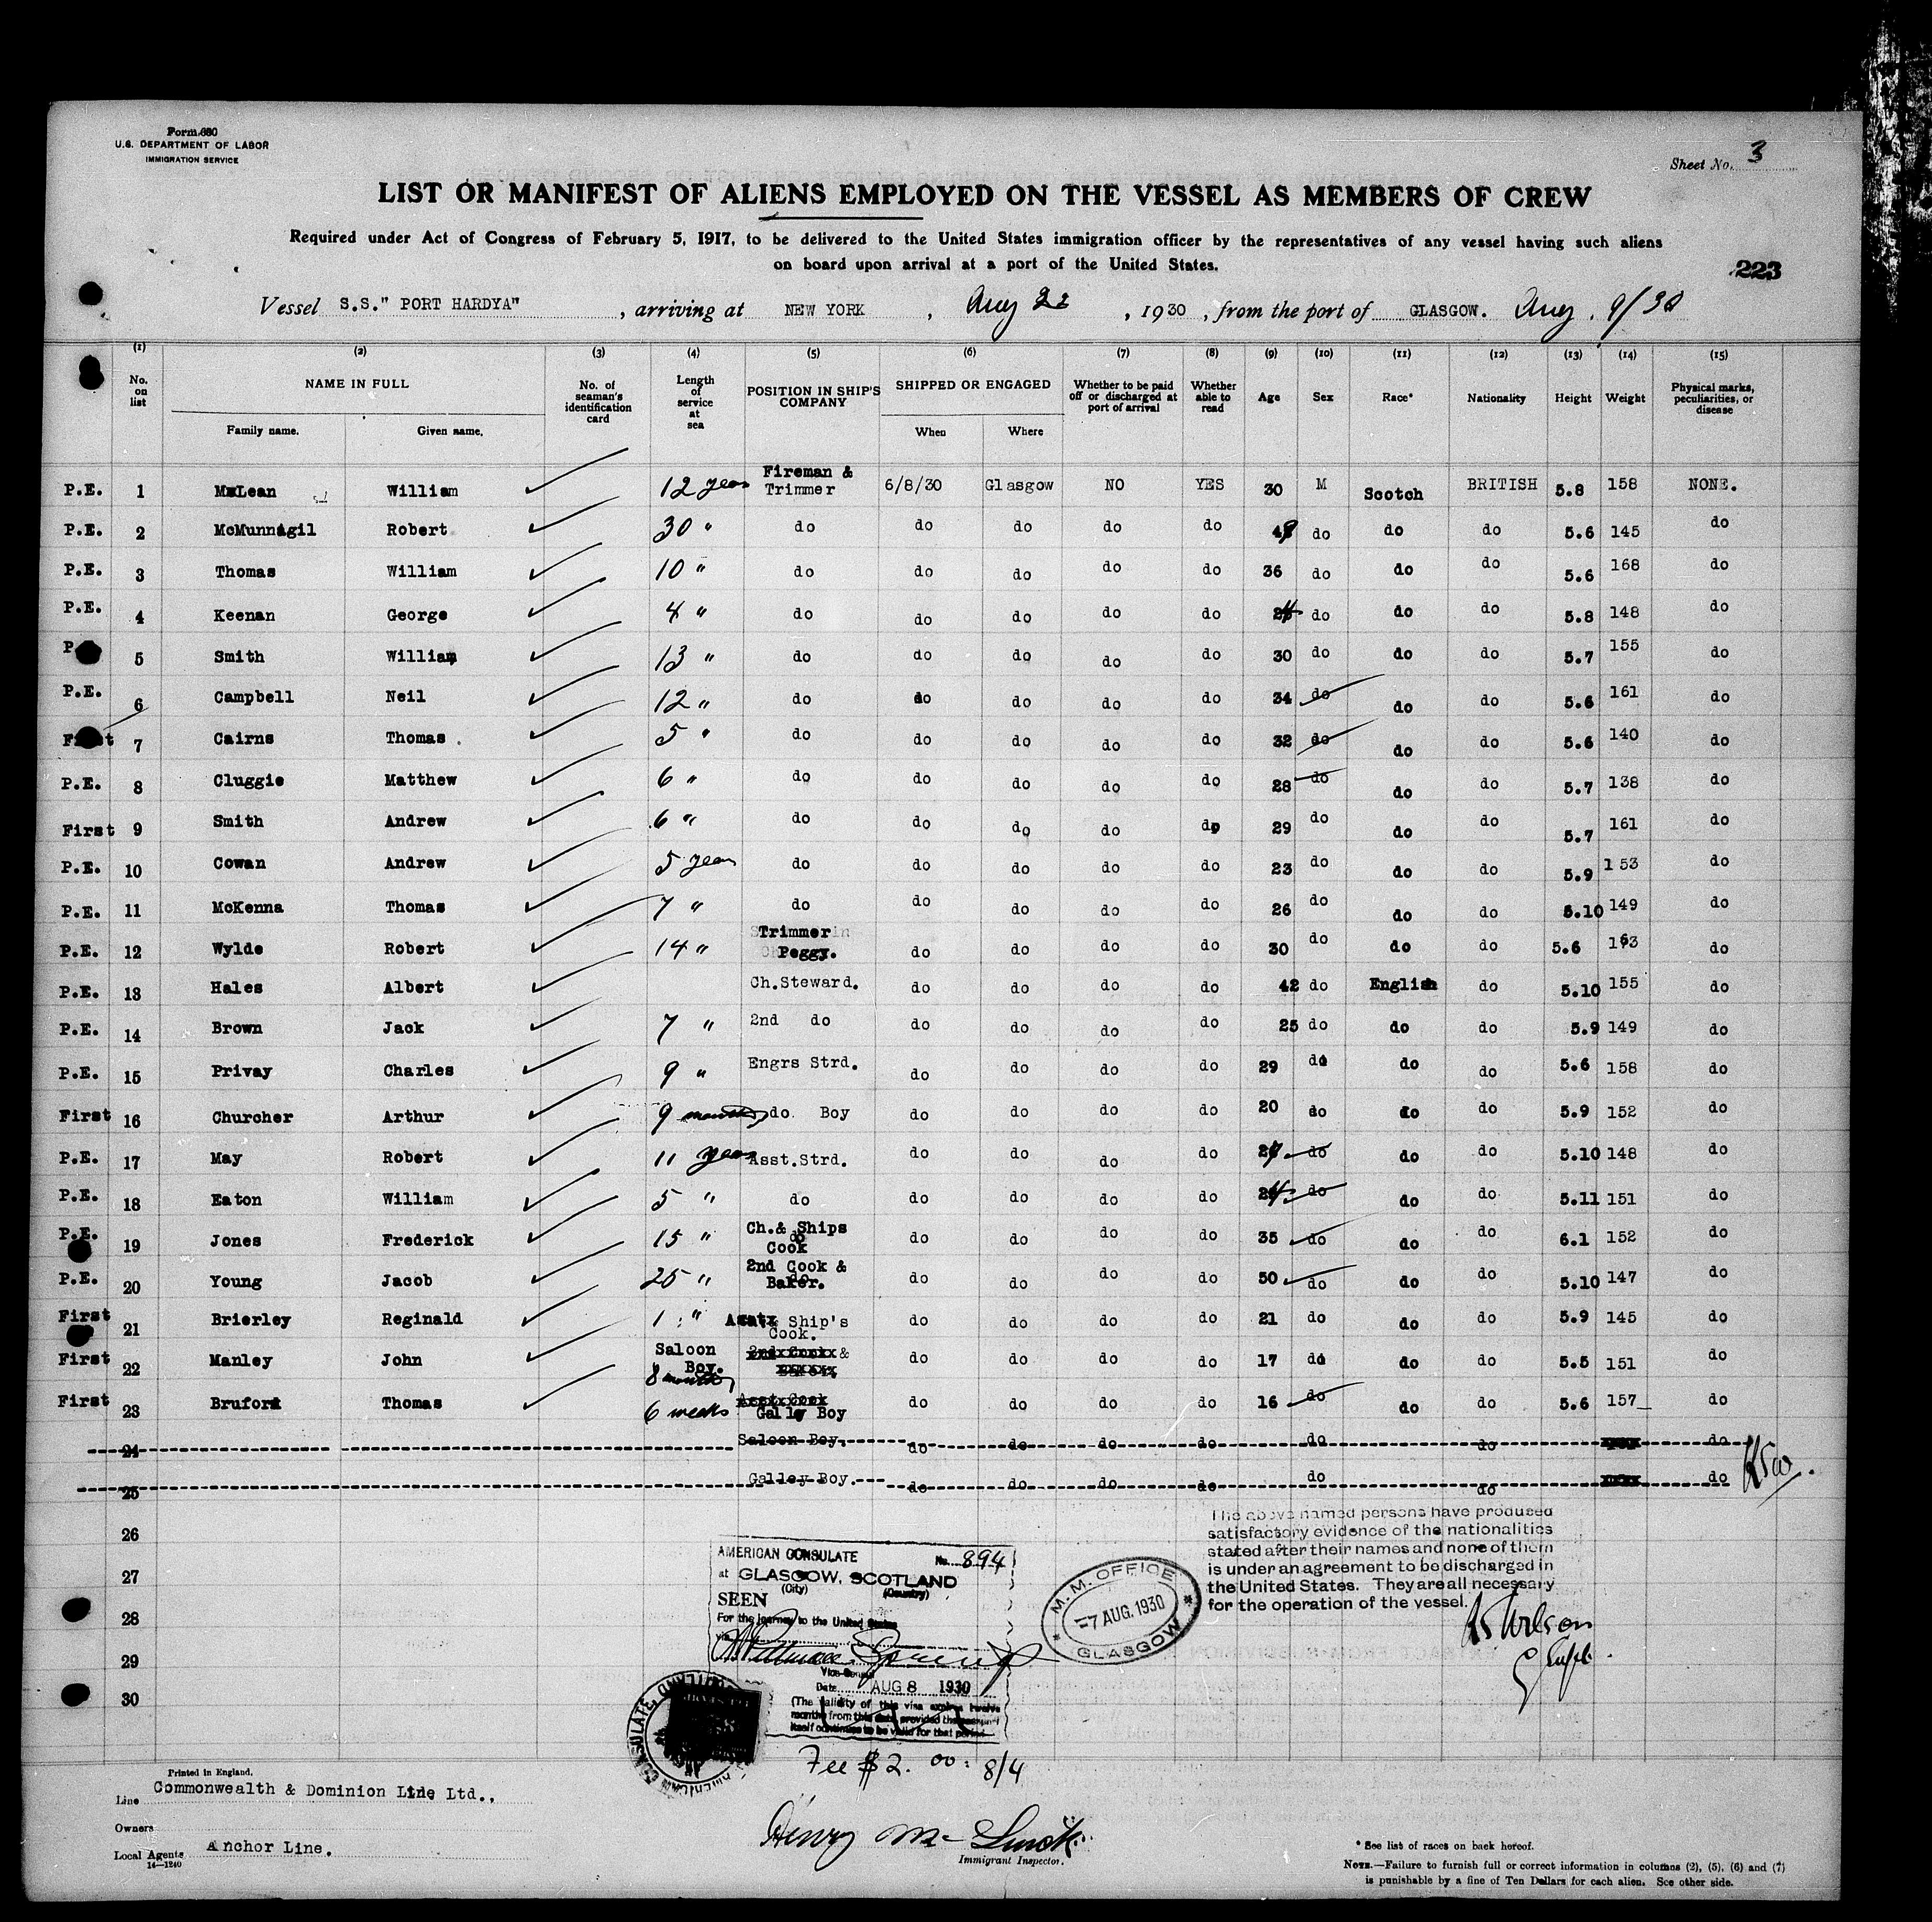 Form 680
U.S. DEPARTMENT OF LABOR
IMMIGRATION SERVICE
Sheet No. 3
LIST OR MANIFEST OF ALIENS EMPLOYED ON THE VESSEL AS MEMBERS OF CREW
Required under Act of Congress of February 5, 1917, to be delivered to the United States immigration officer by the representatives of any vessel having such aliens
on board upon arrival at a port of the United States.
223
Vessel S.S." PORT HARDYA" , arriving at NEW YORK , Aug 22 , 1930 , from the port of GLASGOW. Aug. 9/30
(1) (2) (3) (4) (5) (6) (7) (8) (9) (10) (11) (12) (13) (14) (15)
No. on list NAME IN FULL No. of seaman's identification card Length of service at sea POSITION IN SHIP'S COMPANY SHIPPED OR ENGAGED Whether to be paid off or discharged at port of arrival Whether able to read Age Sex Race* Nationality Height Weight Physical marks, peculiarities, or disease
Family name. Given name. When Where
P.E. 1 McLean William 12 years Fireman & Trimmer 6/8/30 Glasgow NO YES 30 M Scotch BRITISH 5.8 158 NONE.
P.E. 2 McMunnagil Robert 30 " do do do do do 49 do do do 5.6 145 do
P.E. 3 Thomas William 10 " do do do do do 36 do do do 5.6 168 do
P.E. 4 Keenan George 4 " do do do do do 24 do do do 5.8 148 do
P. 5 Smith William 13 " do do do do do 30 do do do 5.7 155 do
P.E. 6 Campbell Neil 12 " do do do do do 34 do do do 5.6 161 do
First 7 Cairns Thomas 5 " do do do do do 32 do do do 5.6 140 do
P.E. 8 Cluggie Matthew 6 " do do do do do 28 do do do 5.7 138 do
First 9 Smith Andrew 6 " do do do do do 29 do do do 5.7 161 do
P.E. 10 Cowan Andrew 5 years do do do do do 23 do do do 5.9 153 do
P.E. 11 McKenna Thomas 7 " do do do do do 26 do do do 5.10 149 do
P.E. 12 Wylde Robert 14 " Trimmer Peggy. do do do do 30 do do do 5.6 163 do
P.E. 13 Hales Albert Ch.Steward. do do do do 42 do English do 5.10 155 do
P.E. 14 Brown Jack 7 " 2nd do do do do do 25 do do do 5.9 149 do
P.E. 15 Privay Charles 9 " Engrs Strd. do do do do 29 do do do 5.6 158 do
First 16 Churcher Arthur 9 months do. Boy do do do do 20 do do do 5.9 152 do
P.E. 17 May Robert 11 years Asst.Strd. do do do do 27 do do do 5.10 148 do
P.E. 18 Eaton William 5 " do do do do do 24 do do do 5.11 151 do
P.E. 19 Jones Frederick 15 " Ch.& Ships Cook do do do do 35 do do do 6.1 152 do
P.E. 20 Young Jacob 25 " 2nd Cook & Baker. do do do do 50 do do do 5.10 147 do
First 21 Brierley Reginald 1 " Ship's Cook. do do do do 21 do do do 5.9 145 do
First 22 Manley John Saloon Boy. 8 months 2nd Cook & do do do do 17 do do do 5.5 151 do
First 23 Bruford Thomas 6 weeks Asst Cook Gally Boy do do do do 16 do do do 5.6 157 do
24 Saloon Boy. do do do do do do do
25 Galley Boy. do do do do do do do
26
27
28
29
30
The above named persons have produced
satisfactory evidence of the nationalities
stated after their names and none of them
is under an agreement to be discharged in
the United States. They are all necessary
for the operation of the vessel.
AMERICAN CONSULATE No. 894
at GLASGOW, SCOTLAND
(City) (Country)
SEEN
For the journey to the United States
via
Vice-Consul
Date AUG 8 1930
(The validity of this visa expires twelve
months from this date provided the passport
itself continues to be valid for that period
M.M. OFFICE
7 AUG. 1930
GLASGOW
Wilson
AMERICAN CONSULATE,
Fee $2.00: 8/4
Printed in England.
Line Commonwealth & Dominion Line Ltd.,
Owners
Local Agents Anchor Line.
14—1240
Henry
Immigrant Inspector.
* See list of races on back hereof.
NOTE.—Failure to furnish full or correct information in columns (2), (5), (6) and (7)
is punishable by a fine of Ten Dollars for each alien. See other side.